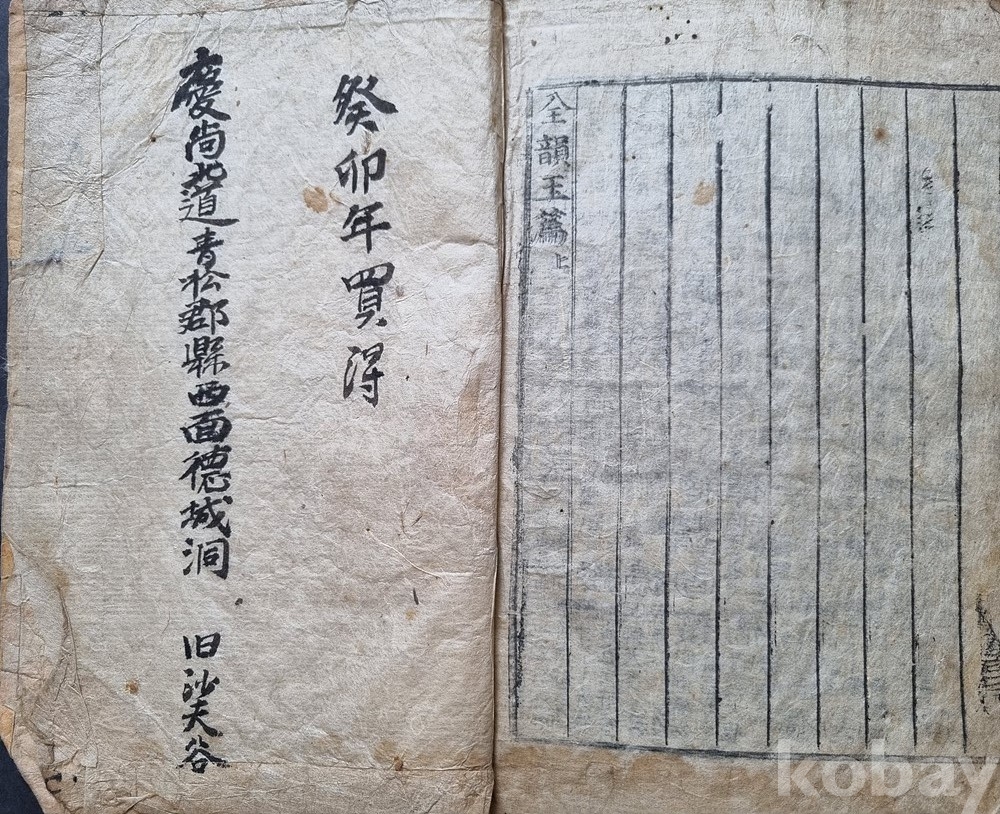 全韻玉篇上
癸卯年買淂
慶尚北道青松郡縣西面德城洞 旧沙夫谷
kobay